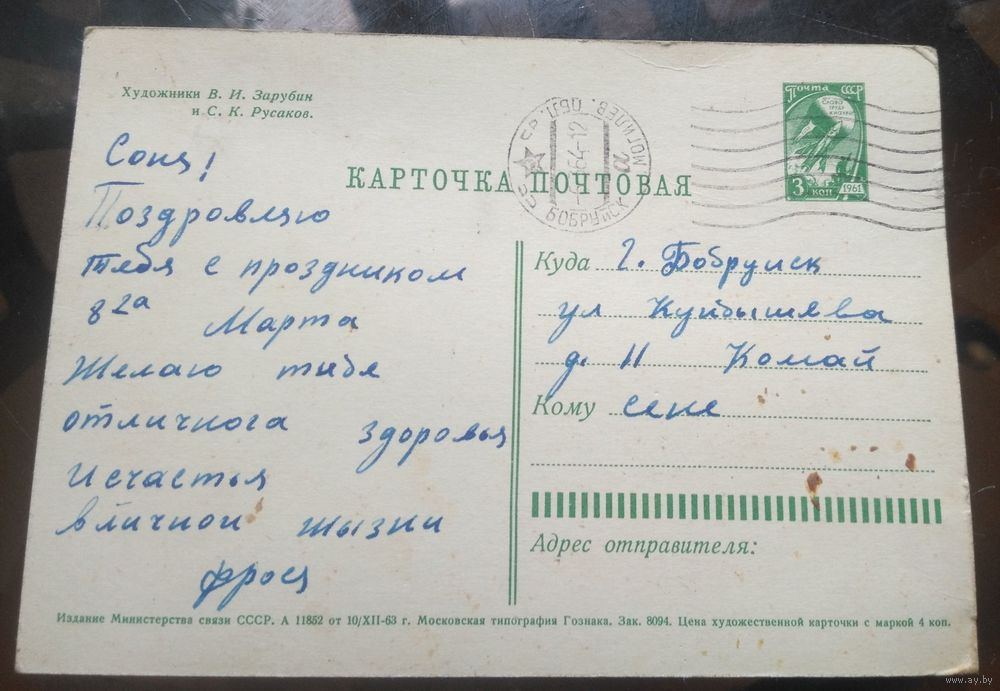 Художники В. И. Зарубин
и С. К. Русаков.
Соня!
Поздровляю
тебя с проздником
8 2а Марта
Желаю тибе
отличнога здоровья
и счастья
в личной жызни
Фрося
КАРТОЧКА ПОЧТОВАЯ
Почта СССР
СЛАВА
ТРУДУ
НАУКЕ
3 КОП
1961
МОГИЛЕВ. ОБЛ.
64-12
БОБРУЙСК
Куда г. Бобруиск
ул Куйбышева
д. 11 Комай
Кому сене
Адрес отправителя:
Издание Министерства связи СССР. А 11852 от 10/XII-63 г. Московская типография Гознака. Зак. 8094. Цена художественной карточки с маркой 4 коп.
www.ay.by